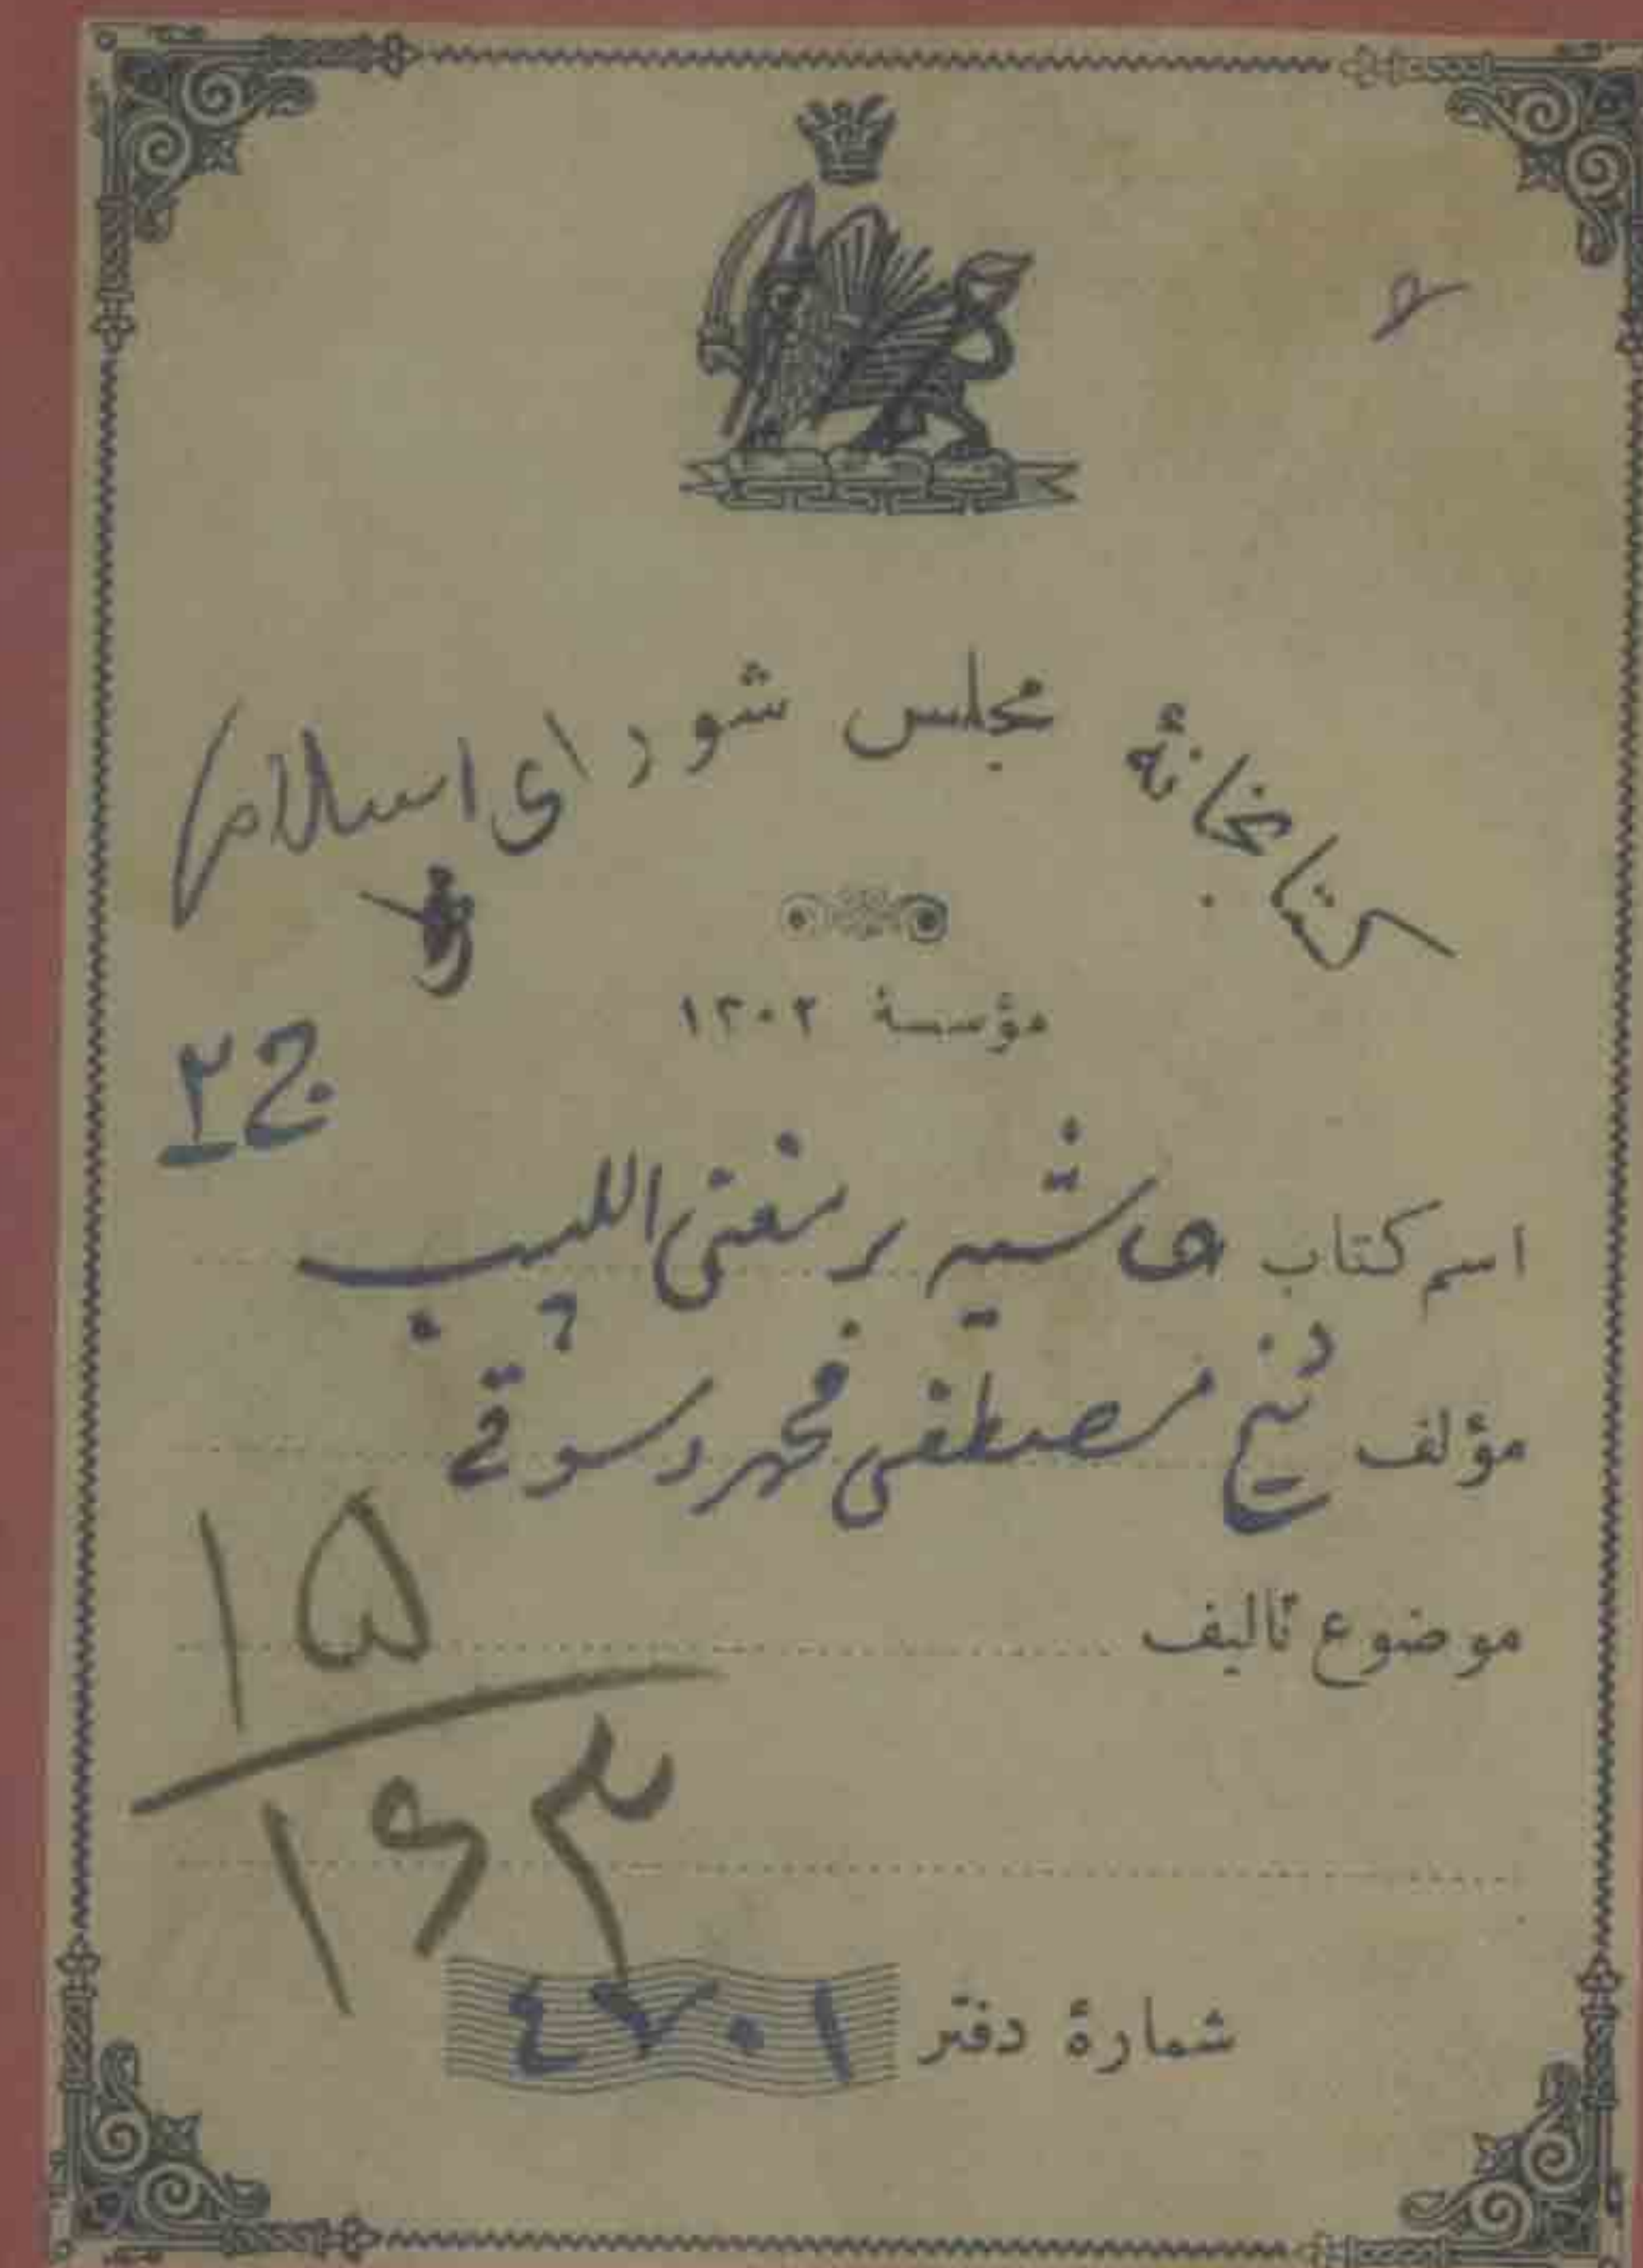 کتابخانهٔ مجلس شورای اسلامی
مؤسسهٔ ۱۳۰۲
ج۲
اسم کتاب حاشیه بر مغنی اللبیب
مؤلف شیخ مصطفی محمد دسوقی
موضوع تألیف
۱۵
۱۶۳
شمارهٔ دفتر